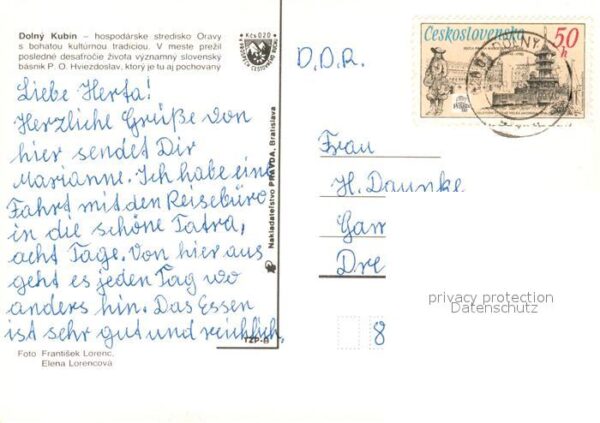 Dolný Kubín – hospodárske stredisko Oravy
s bohatou kultúrnou tradíciou. V meste prežil
posledné desaťročie života významný slovenský
básnik P. O. Hviezdoslav, ktorý je tu aj pochovaný
Kčs 0,20
Liebe Herta!
Herzliche Grüße von
hier sendet Dir
Marianne. Ich habe eine
Fahrt mit den Reisebüro
in die schöne Tatra,
acht Tage. Von hier aus
geht es jeden Tag wo
anders hin. Das Essen
ist sehr gut und reichlich.
Foto: František Lorenc,
Elena Lorencová
Nakladateľstvo PRAVDA, Bratislava
TZP-B
Československo
50
h
DOLNÝ
D.D.R.
Frau
H. Daunke
Gam
Dre
8
privacy protection
Datenschutz